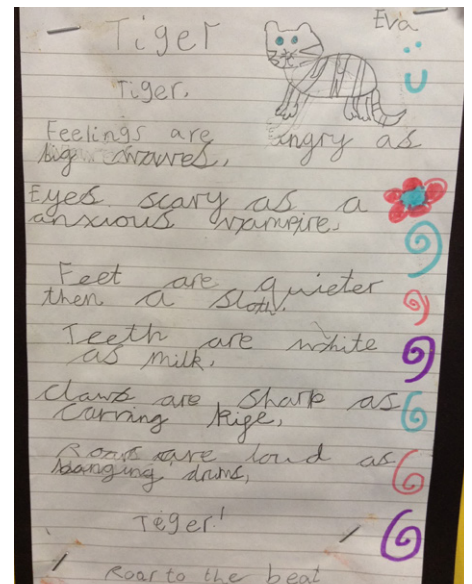 Tiger
Eva
Tiger,
Feelings are angry as
big waves,
Eyes scary as a
anxious vampire,
Feet are quieter
then a sloth.
Teeth are white
as milk,
claws are sharp as
carving
Roars are loud as
banging drums,
Tiger!
Roar to the beat